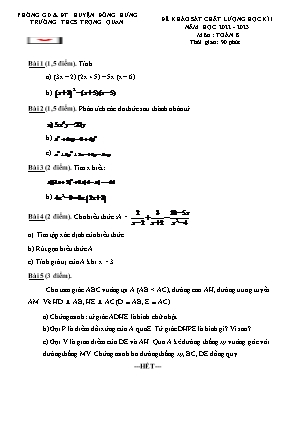 PHÒNG GD & ĐT HUYỆN ĐÔNG HƯNG
TRƯỜNG THCS TRỌNG QUAN
ĐỀ KHẢO SÁT CHẤT LƯỢNG HỌC KÌ I
NĂM HỌC 2022 - 2023
Môn : TOÁN 8
Thời gian: 90 phút
Bài 1 (1,5 điểm). Tính
a) (3x – 2) (2x + 5) – 5x (x – 6)
b)
Bài 2 (1,5 điểm). Phân tích các đa thức sau thành nhân tử
a)
b)
c)
Bài 3 (2 điểm). Tìm x biết:
a)
b)
Bài 4 (2 điểm). Cho biểu thức A =
a) Tìm tập xác định của biểu thức
b) Rút gọn biểu thức A
c) Tính giá trị của A khi x = 3
Bài 5 (3 điểm).
Cho tam giác ABC vuông tại A (AB < AC), đường cao AH, đường trung tuyến
AM. Vẽ HD ⊥ AB, HE ⊥ AC (D ∈ AB, E ∈ AC)
a) Chứng minh: tứ giác ADHE là hình chữ nhật.
b) Gọi P là điểm đối xứng của A qua E. Tứ giác DHPE là hình gì? Vì sao?
c) Gọi V là giao điểm của DE và AH. Qua A kẻ đường thẳng xy vuông góc với
đường thẳng MV. Chứng minh ba đường thẳng xy, BC, DE đồng quy.
---HẾT---